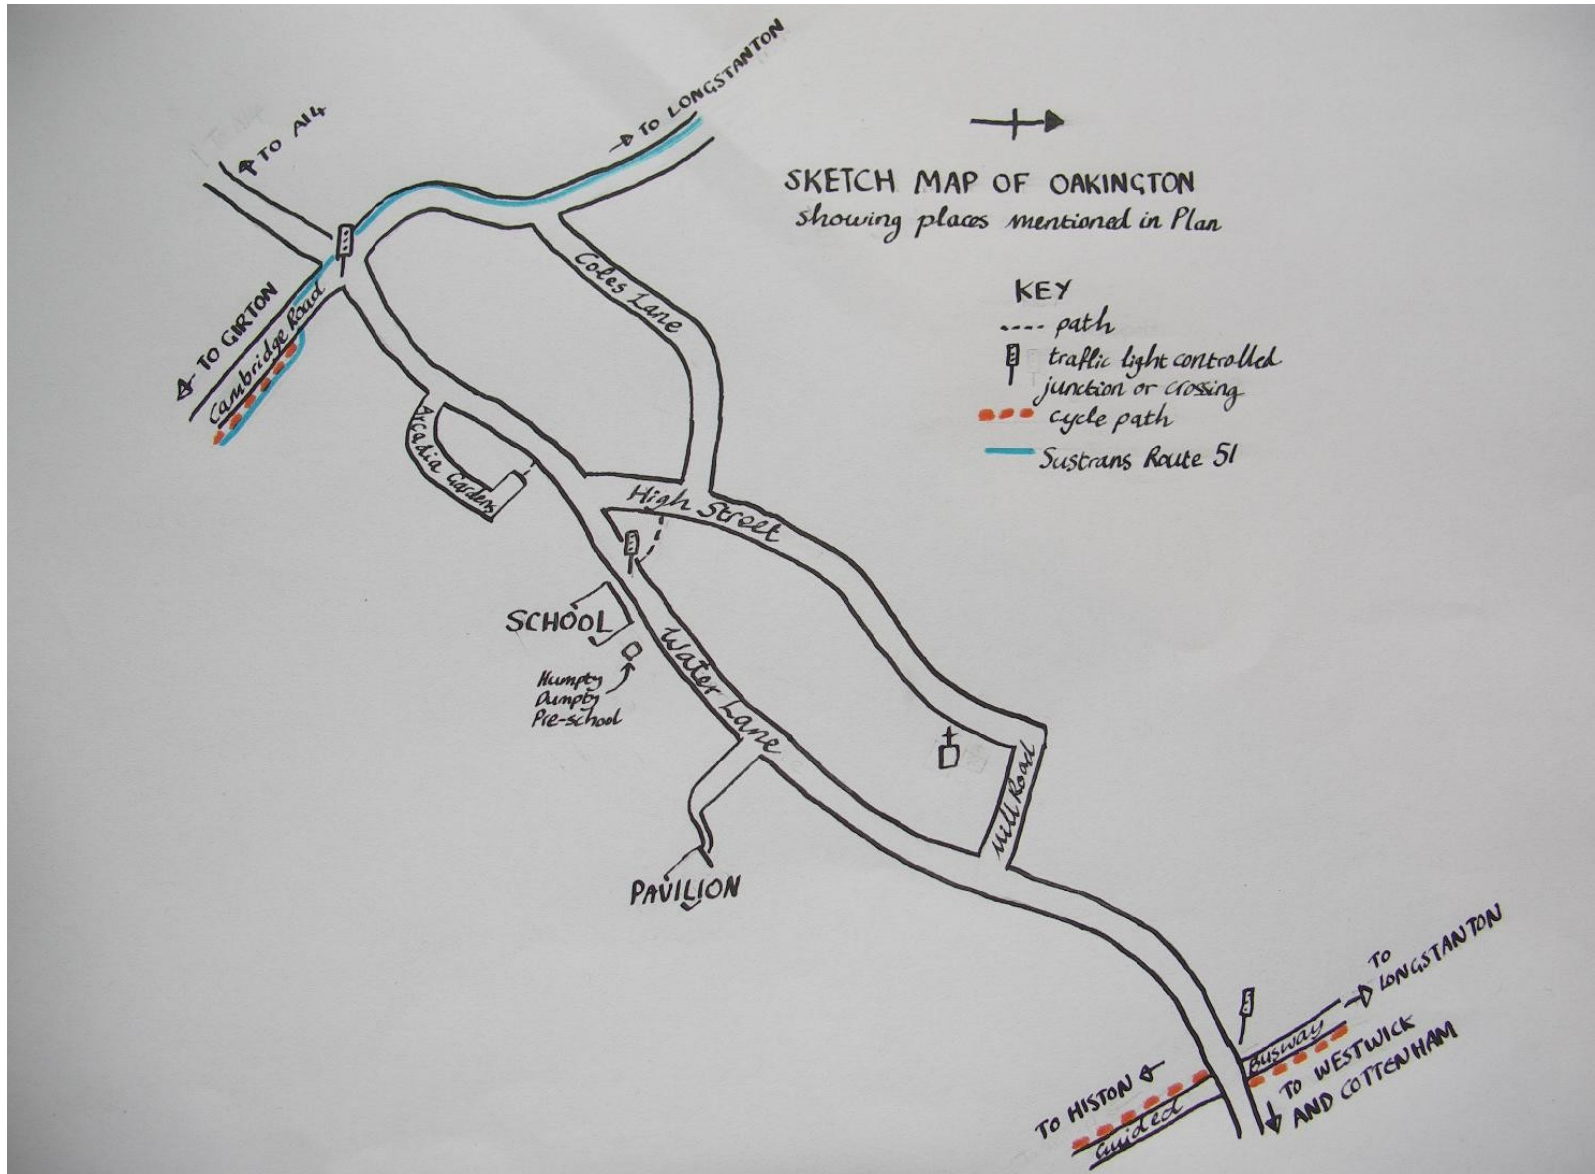 TO A14
TO LONGSTANTON
SKETCH MAP OF OAKINGTON
showing places mentioned in Plan
KEY
path
traffic light controlled
junction or crossing
cycle path
Sustrans Route 51
TO GIRTON
Cambridge Road
Coles Lane
Arcadia Gardens
High Street
SCHOOL
Humpty
Dumpty
Pre-school
Water Lane
PAVILION
Mill Road
TO
LONGSTANTON
Busway
TO WESTWICK
AND COTTENHAM
TO HISTON
Guided